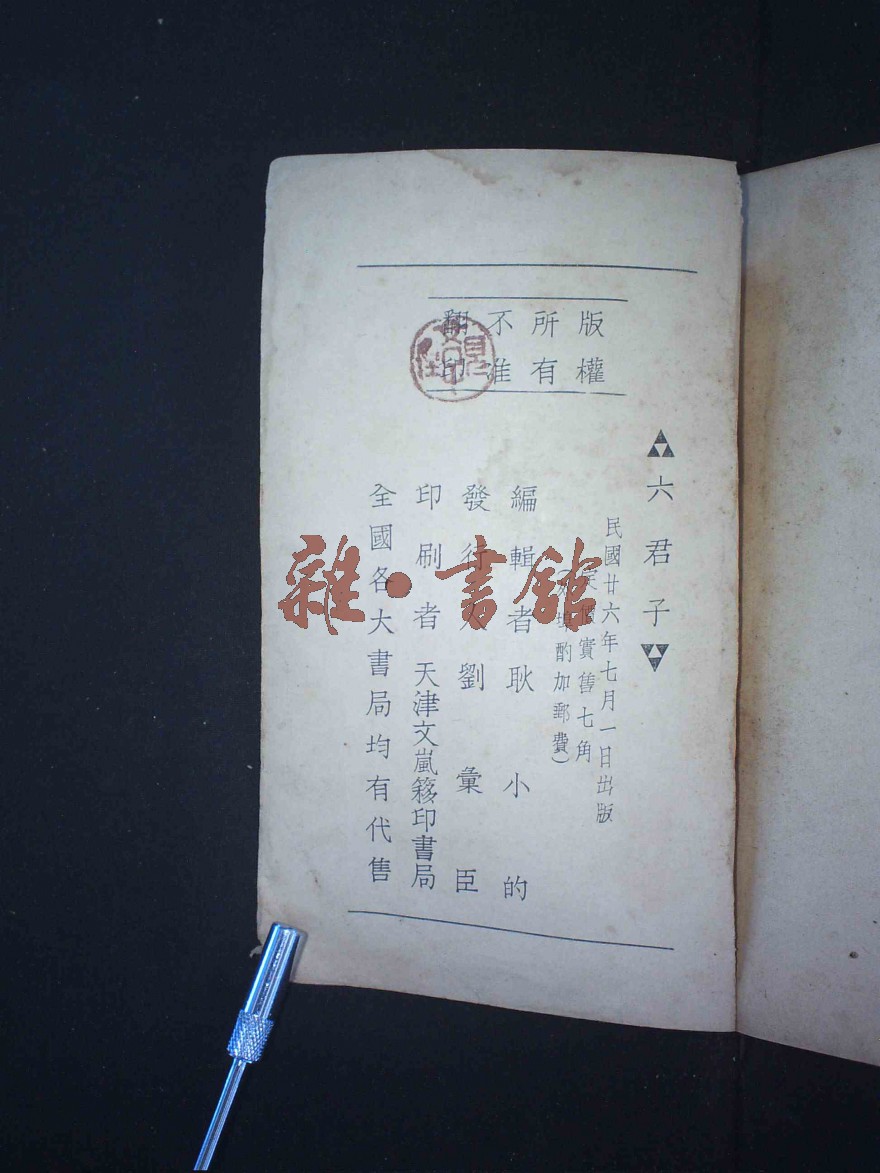 版權所有不准翻印
六君子
民國廿六年七月一日出版
定價實售七角
埠酌加郵費）
編輯者耿小的
發行人劉彙臣
印刷者天津文嵐簃印書局
全國各大書局均有代售
雜·書館